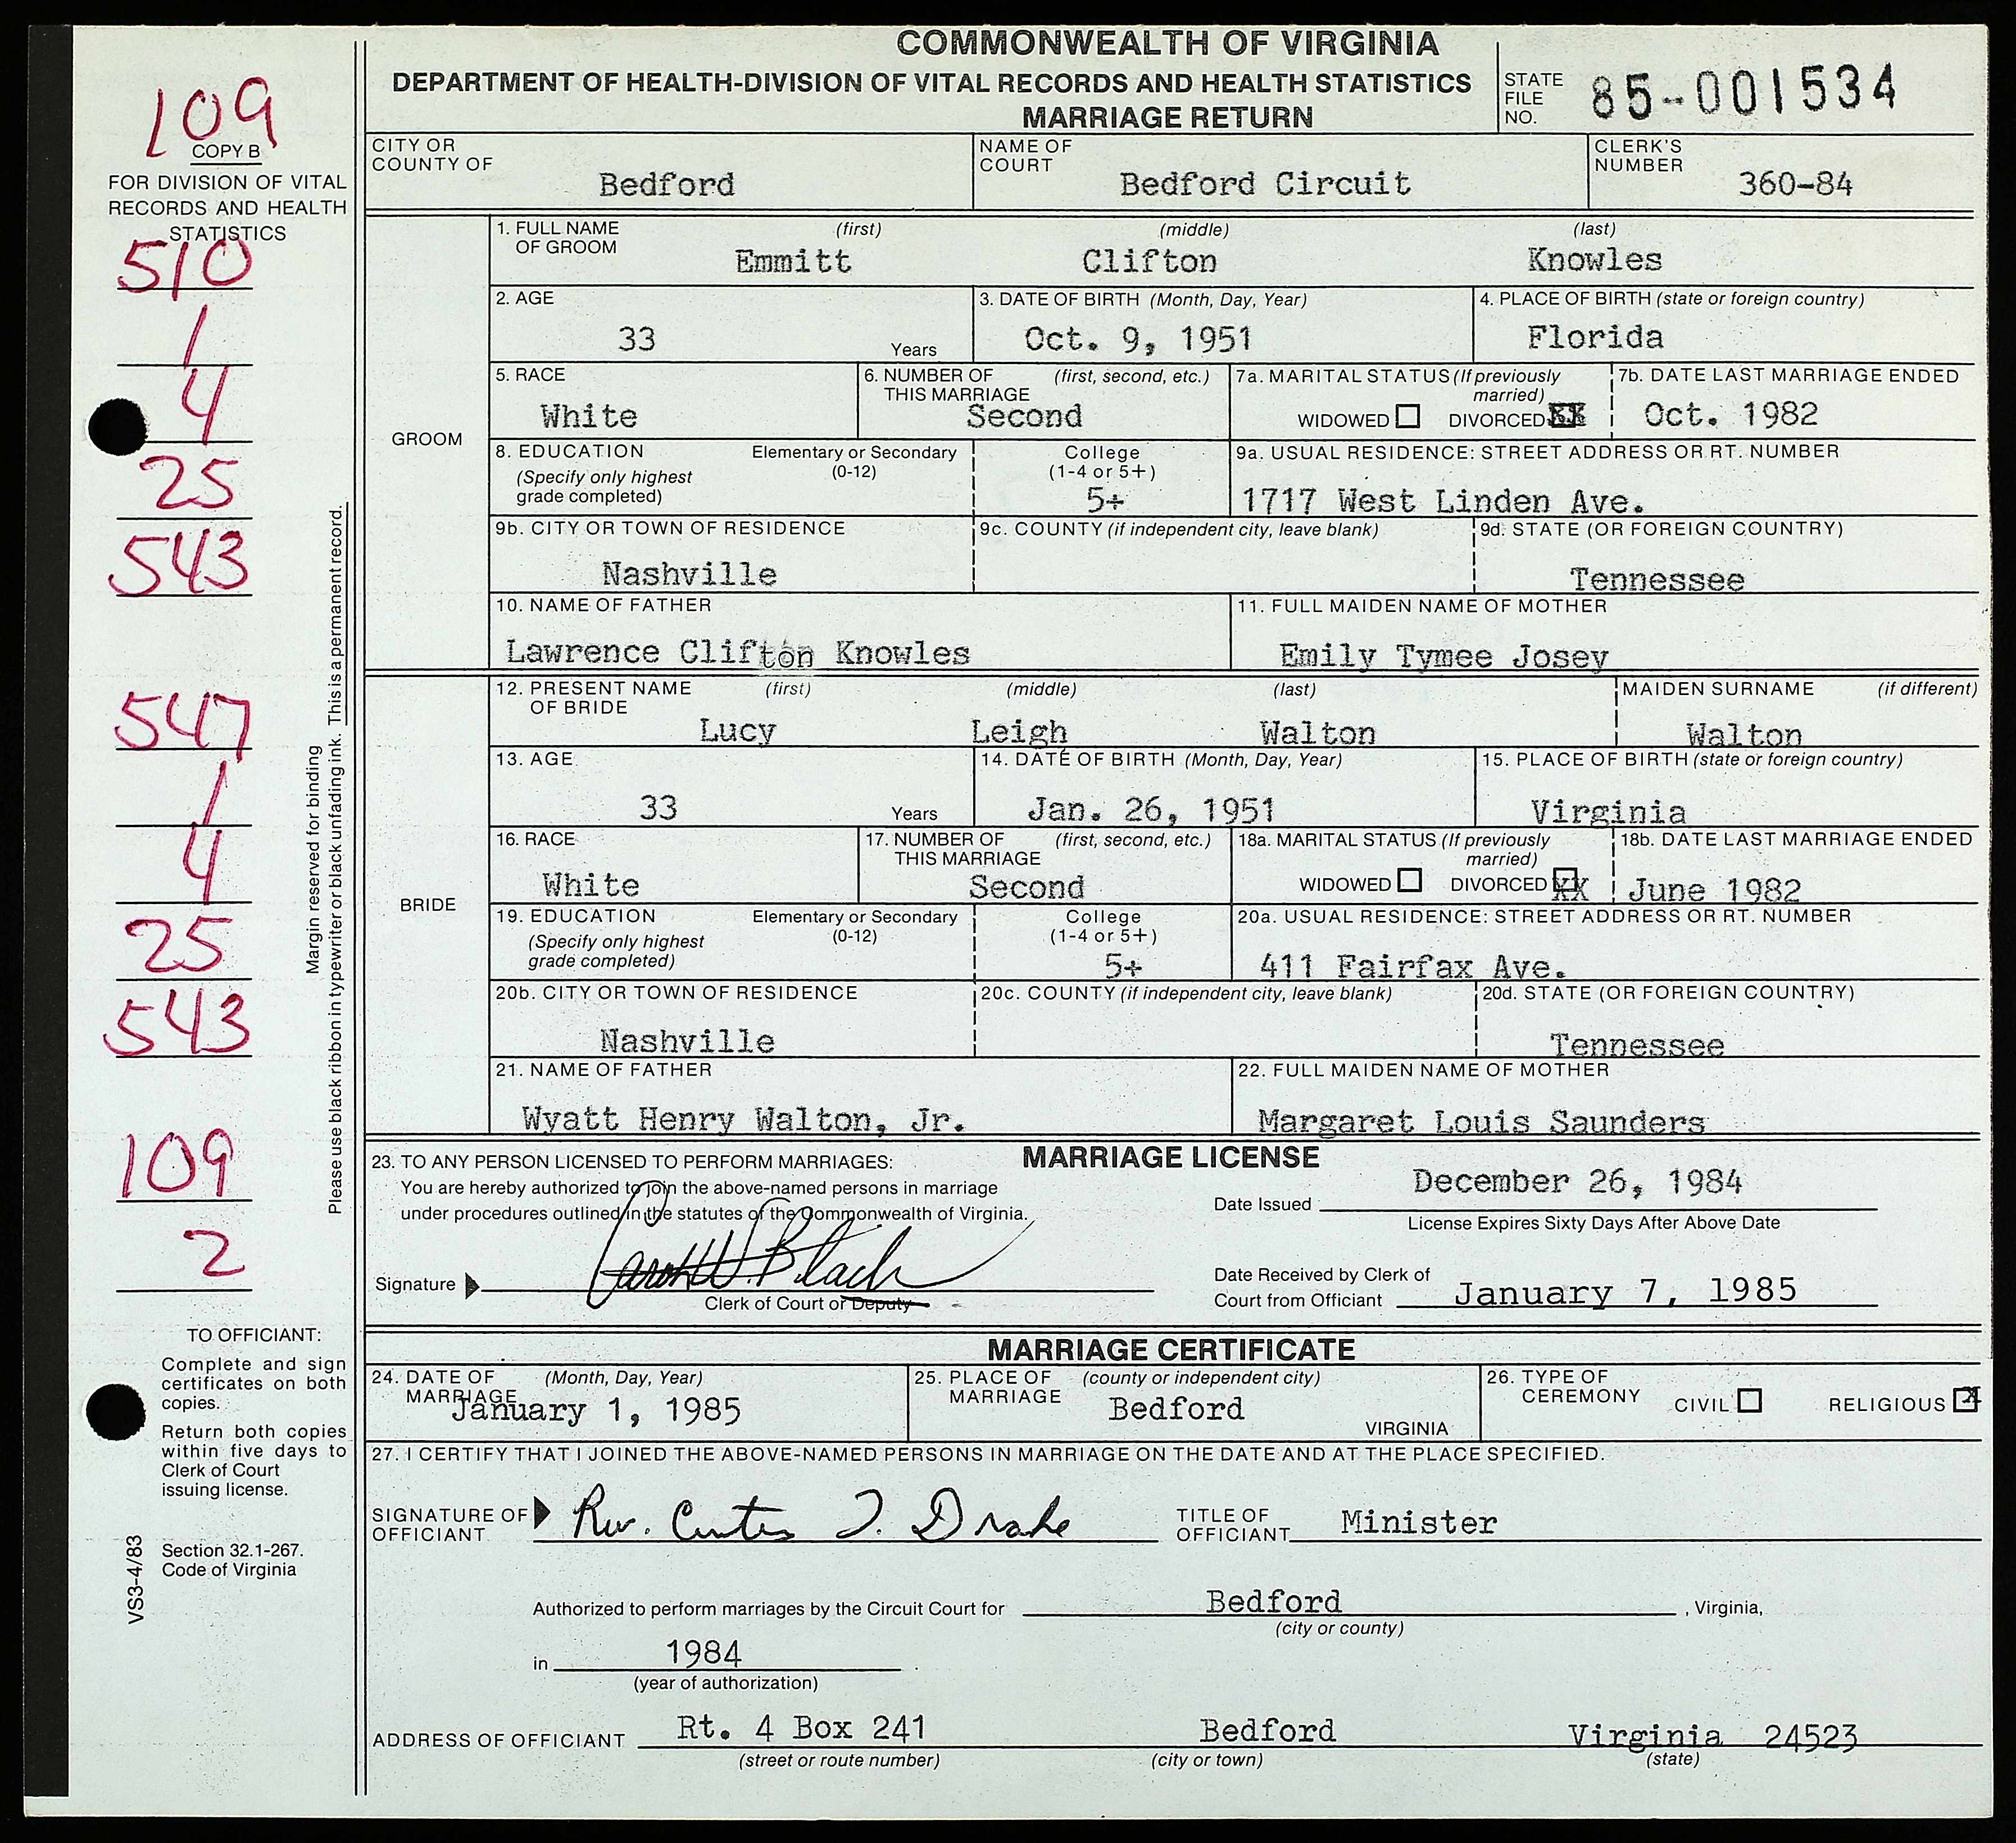 COMMONWEALTH OF VIRGINIA
DEPARTMENT OF HEALTH-DIVISION OF VITAL RECORDS AND HEALTH STATISTICS
MARRIAGE RETURN
STATE FILE NO. 85-001534
109
COPY B
FOR DIVISION OF VITAL
RECORDS AND HEALTH
STATISTICS
510
1
4
25
543
547
1
4
25
543
109
2
Margin reserved for binding
Please use black ribbon in typewriter or black unfading ink. This is a permanent record.
TO OFFICIANT:
Complete and sign
certificates on both
copies.
Return both copies
within five days to
Clerk of Court
issuing license.
Section 32.1-267.
Code of Virginia
VS3-4/83
CITY OR COUNTY OF Bedford
NAME OF COURT Bedford Circuit
CLERK'S NUMBER 360-84
GROOM
1. FULL NAME OF GROOM (first) (middle) (last)
Emmitt Clifton Knowles
2. AGE 33 Years
3. DATE OF BIRTH (Month, Day, Year) Oct. 9, 1951
4. PLACE OF BIRTH (state or foreign country) Florida
5. RACE White
6. NUMBER OF THIS MARRIAGE (first, second, etc.) Second
7a. MARITAL STATUS (If previously married) WIDOWED DIVORCED XX
7b. DATE LAST MARRIAGE ENDED Oct. 1982
8. EDUCATION (Specify only highest grade completed) Elementary or Secondary (0-12) College (1-4 or 5+) 5+
9a. USUAL RESIDENCE: STREET ADDRESS OR RT. NUMBER 1717 West Linden Ave.
9b. CITY OR TOWN OF RESIDENCE Nashville
9c. COUNTY (if independent city, leave blank)
9d. STATE (OR FOREIGN COUNTRY) Tennessee
10. NAME OF FATHER Lawrence Clifton Knowles
11. FULL MAIDEN NAME OF MOTHER Emily Tymee Josey
BRIDE
12. PRESENT NAME OF BRIDE (first) (middle) (last) MAIDEN SURNAME (if different)
Lucy Leigh Walton Walton
13. AGE 33 Years
14. DATE OF BIRTH (Month, Day, Year) Jan. 26, 1951
15. PLACE OF BIRTH (state or foreign country) Virginia
16. RACE White
17. NUMBER OF THIS MARRIAGE (first, second, etc.) Second
18a. MARITAL STATUS (If previously married) WIDOWED DIVORCED XX
18b. DATE LAST MARRIAGE ENDED June 1982
19. EDUCATION (Specify only highest grade completed) Elementary or Secondary (0-12) College (1-4 or 5+) 5+
20a. USUAL RESIDENCE: STREET ADDRESS OR RT. NUMBER 411 Fairfax Ave.
20b. CITY OR TOWN OF RESIDENCE Nashville
20c. COUNTY (if independent city, leave blank)
20d. STATE (OR FOREIGN COUNTRY) Tennessee
21. NAME OF FATHER Wyatt Henry Walton, Jr.
22. FULL MAIDEN NAME OF MOTHER Margaret Louis Saunders
MARRIAGE LICENSE
23. TO ANY PERSON LICENSED TO PERFORM MARRIAGES:
You are hereby authorized to join the above-named persons in marriage
under procedures outlined in the statutes of the Commonwealth of Virginia.
Date Issued December 26, 1984
License Expires Sixty Days After Above Date
Signature W. Black
Clerk of Court or Deputy
Date Received by Clerk of Court from Officiant January 7, 1985
MARRIAGE CERTIFICATE
24. DATE OF MARRIAGE (Month, Day, Year) January 1, 1985
25. PLACE OF MARRIAGE (county or independent city) Bedford VIRGINIA
26. TYPE OF CEREMONY CIVIL RELIGIOUS X
27. I CERTIFY THAT I JOINED THE ABOVE-NAMED PERSONS IN MARRIAGE ON THE DATE AND AT THE PLACE SPECIFIED.
SIGNATURE OF OFFICIANT Rev. Curtis J. Drake
TITLE OF OFFICIANT Minister
Authorized to perform marriages by the Circuit Court for Bedford , Virginia,
(city or county)
in 1984 .
(year of authorization)
ADDRESS OF OFFICIANT Rt. 4 Box 241 Bedford Virginia 24523
(street or route number) (city or town) (state)